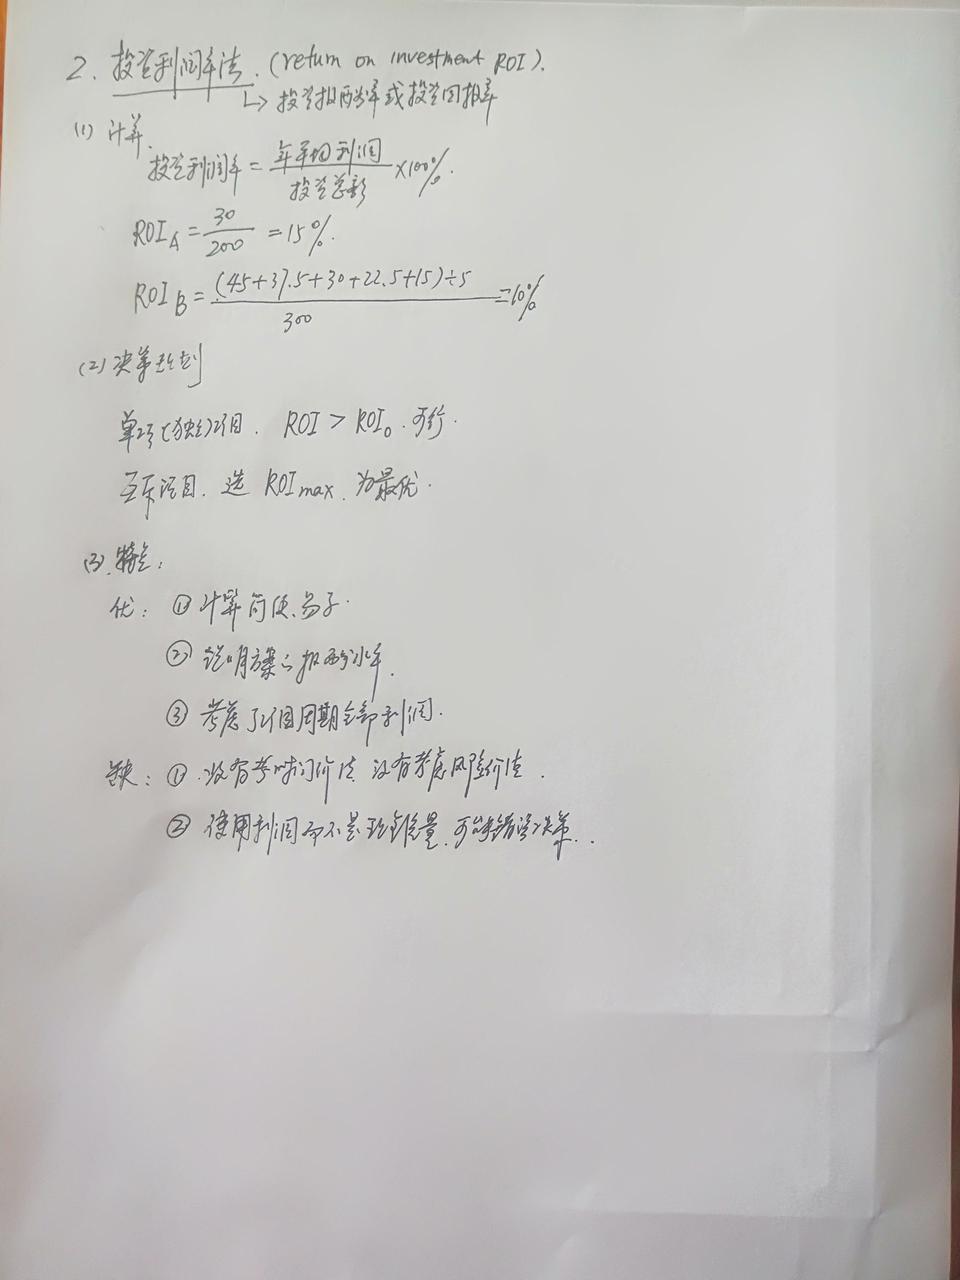 2. 投资利润率法. (return on investment ROI).
↳ 投资报酬率或投资回报率
(1) 计算.
投资利润率 = 年平均利润 / 投资总额 ×100%.
ROI_A = 30 / 200 = 15%.
ROI_B = (45+37.5+30+22.5+15)÷5 / 300 = 10%
(2) 决策规则
单项(独立)项目. ROI > ROI₀. 可行.
互斥项目. 选 ROI max. 为最优.
(3). 特点:
优: ① 计算简便.易子.
② 说明方案之报酬水平.
③ 考虑了项目周期全部利润.
缺: ①. 没有考时间价值 没有考虑风险价值.
② 使用利润而不是现金流量. 可能错误决策..